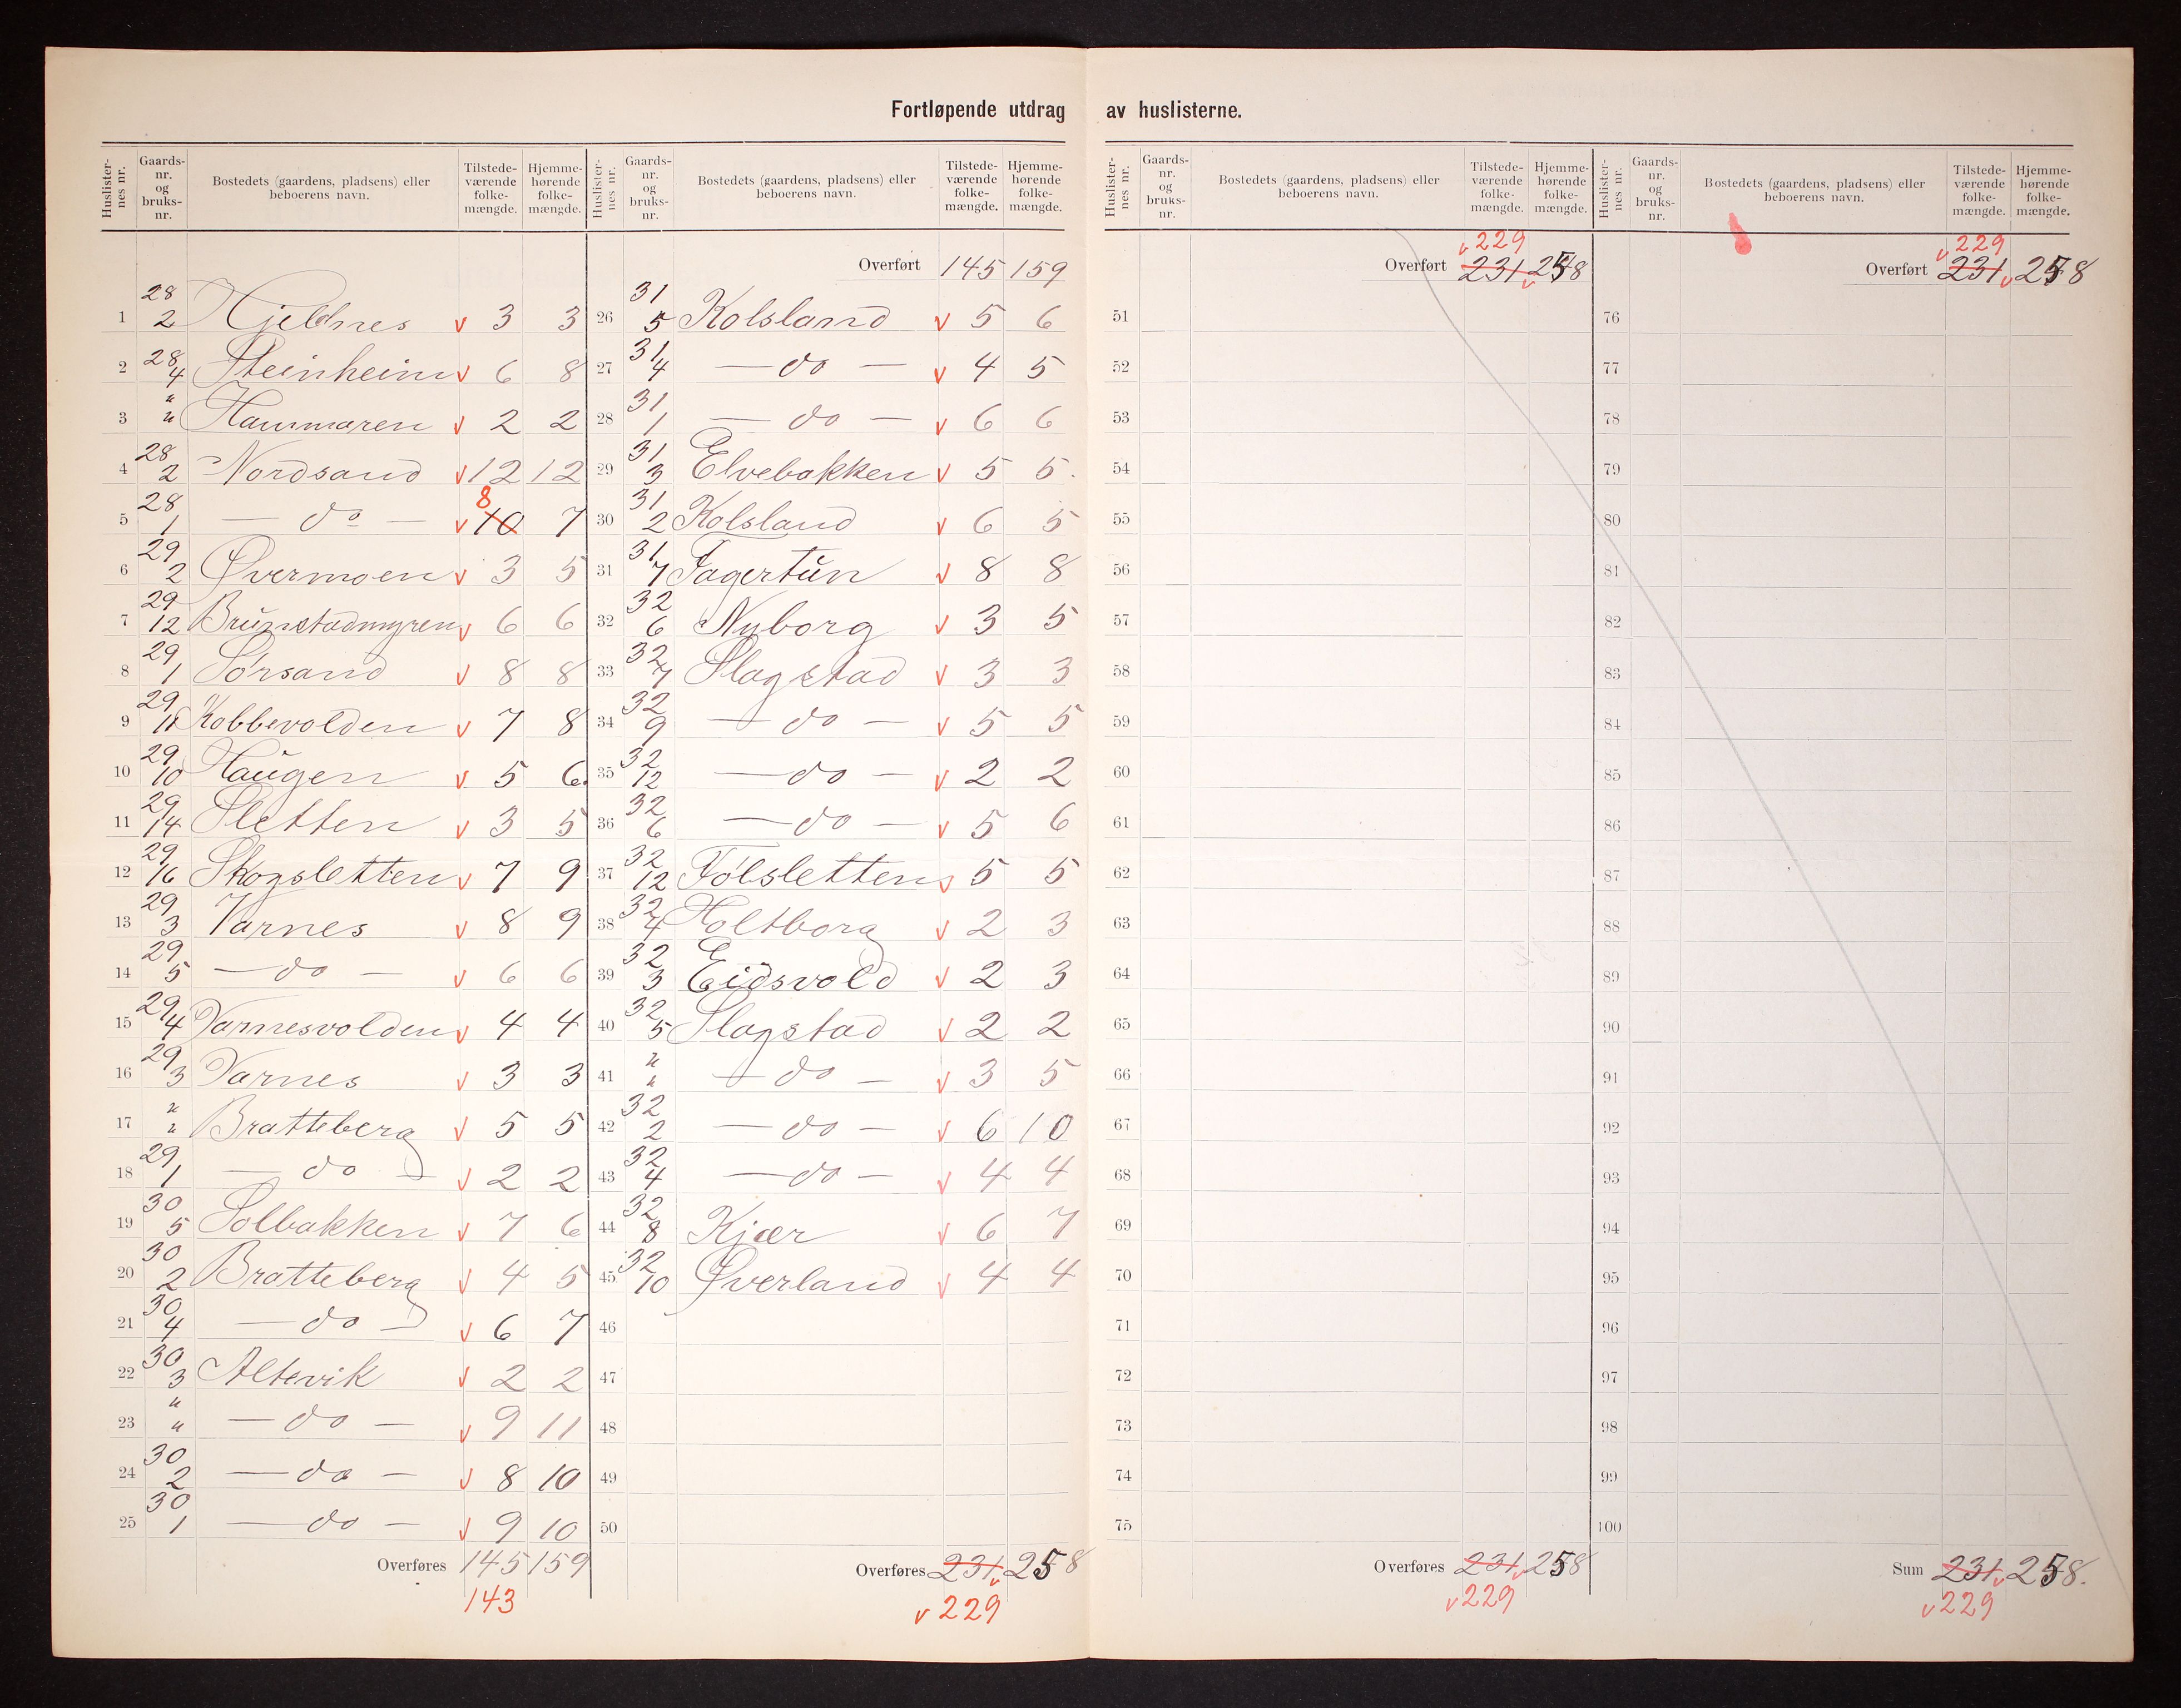 Fortløpende utdrag av huslisterne.
Huslisternes nr. Gaards-nr. og bruks-nr. Bostedets (gaardens, pladsens) eller beboerens navn. Tilstedeværende folkemængde. Hjemmehørende folkemængde.
1 28 2 Hjellnes v 3 3
2 28 4 Steinheim v 6 8
3 " " Hammaren v 2 2
4 28 2 Nordsand v 12 12
5 28 1 — do — v 10 8 7
6 29 2 Øvermoen v 3 5
7 29 12 Brunstadmyren v 6 6
8 29 1 Sørsand v 8 8
9 29 11 Kobbevolden v 7 8
10 29 10 Haugen v 5 6
11 29 14 Sletten v 3 5
12 29 16 Skogsletten v 7 9
13 29 3 Varnes v 8 9
14 29 5 — do — v 6 6
15 29 4 Varnesvolden v 4 4
16 29 3 Varnes v 3 3
17 " " Bratteberg v 5 5
18 29 1 — do — v 2 2
19 30 5 Solbakken v 7 6
20 30 2 Bratteberg v 4 5
21 30 4 — do — v 6 7
22 30 3 Altevik v 2 2
23 " " — do — v 9 11
24 30 2 — do — v 8 10
25 30 1 — do — v 9 10
Overføres 145 159
143
Huslisternes nr. Gaards-nr. og bruks-nr. Bostedets (gaardens, pladsens) eller beboerens navn. Tilstedeværende folkemængde. Hjemmehørende folkemængde.
Overført 145 159
26 31 5 Kolsland v 5 6
27 31 4 — do — v 4 5
28 31 1 — do — v 6 6
29 31 3 Elvebakken v 5 5.
30 31 2 Kolsland v 6 5
31 31 7 Fagertun v 8 8
32 32 6 Nyborg v 3 5
33 32 7 Slagstad v 3 3
34 32 9 — do — v 5 5
35 32 12 — do — v 2 2
36 32 6 — do — v 5 6
37 32 12 Tølsletten v 5 5
38 32 4 Holtborg v 2 3
39 32 3 Eidsvold v 2 3
40 32 5 Slagstad v 2 2
41 " " — do — v 3 5
42 32 2 — do — v 6 10
43 32 4 — do — v 4 4
44 32 8 Kjær v 6 7
45 32 10 Øverland v 4 4
46
47
48
49
50
Overføres 231 v 258
v 229
Huslisternes nr. Gaards-nr. og bruks-nr. Bostedets (gaardens, pladsens) eller beboerens navn. Tilstedeværende folkemængde. Hjemmehørende folkemængde.
v 229
Overført 231 v 258
51
52
53
54
55
56
57
58
59
60
61
62
63
64
65
66
67
68
69
70
71
72
73
74
75
Overføres 231 v 258
v 229
Huslisternes nr. Gaards-nr. og bruks-nr. Bostedets (gaardens, pladsens) eller beboerens navn. Tilstedeværende folkemængde. Hjemmehørende folkemængde.
v 229
Overført 231 v 258
76
77
78
79
80
81
82
83
84
85
86
87
88
89
90
91
92
93
94
95
96
97
98
99
100
Sum 231 v 258.
v 229